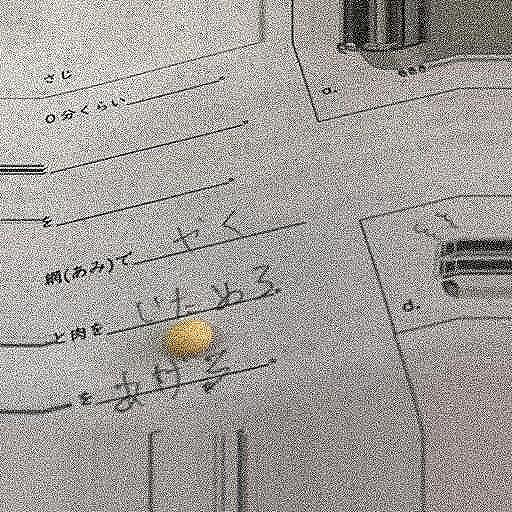 さじ
0分くらい
を
網(あみ)で やく
と肉を いためる
を あげる
a.
d.